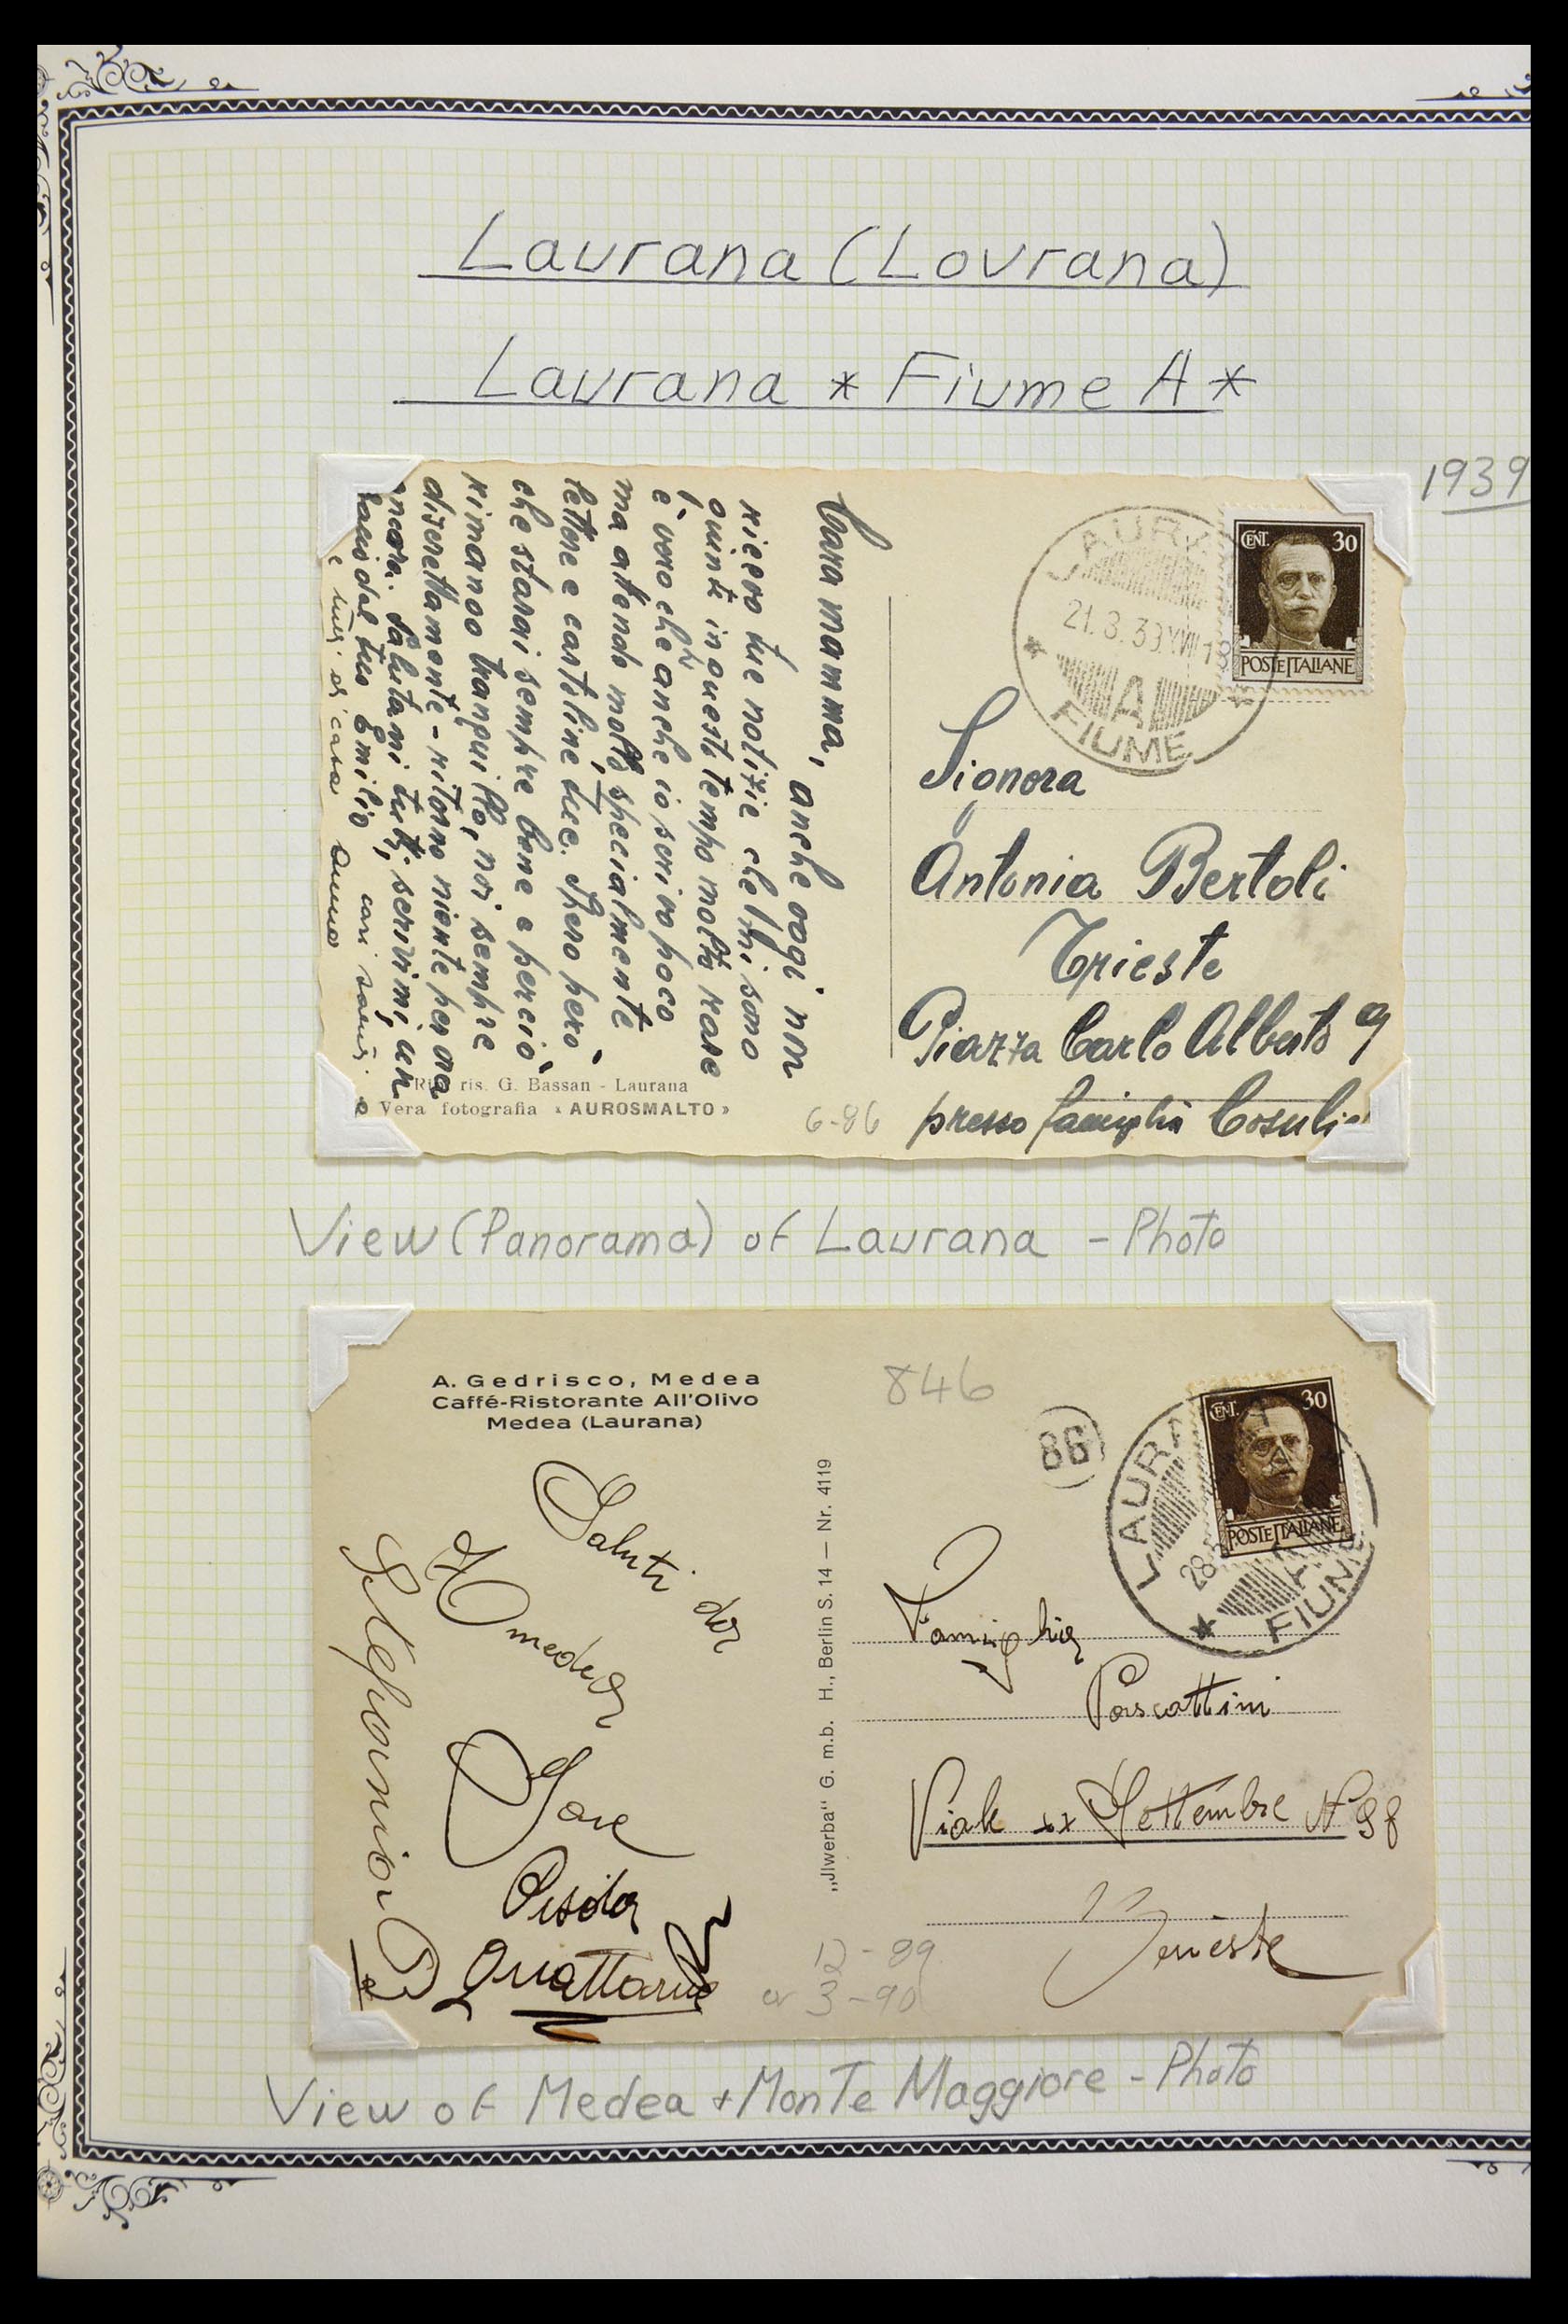 Laurana (Lovrana)
Laurana * Fiume A *
1939
Cara mamma, anche oggi non
ricevo tue notizie che mi sono
giunte in questi tempo molto rare
è vero che anche io scrivo poco
ma attendo molto specialmente
lettere e cartoline tue. Spero però
che starai sempre bene e perciò
rimango tranquillo, noi sempre
discrettamente - ritorno niente per ora
ancora. Salutami tutti, scrivimi, un
bacio dal tuo Emilio cari saluti
e tutti di casa
Rip. ris. G. Bassan - Laurana
Vera fotografia « AUROSMALTO »
LAURANA
21.3.39.XVII 18
* A *
FIUME
CENT. 30
POSTE ITALIANE
Signora
Antonia Bertoli
Trieste
Piazza Carlo Alberto 9
presso famiglia
6-86
View (Panorama) of Laurana - Photo
A. Gedrisco, Medea
Caffé-Ristorante All'Olivo
Medea (Laurana)
846
86
LAURA
28.
A
FIUME
CENT. 30
POSTE ITALIANE
Saluti da
Medea
Stefania
Quattarne
„Jlwerba" G. m.b. H., Berlin S. 14 — Nr. 4119
Famiglia
Pascattini
Viale xx Settembre N° 98
Trieste
12-89
or 3-90
View of Medea + Monte Maggiore - Photo